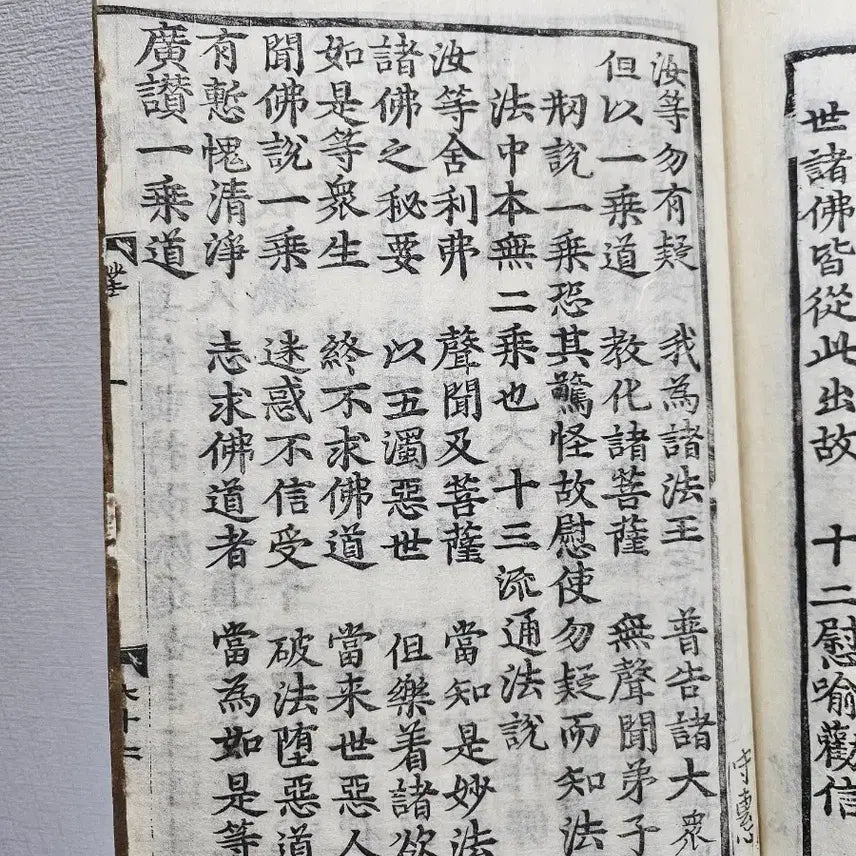 世諸佛皆從此出故 十二慰喻勸信
汝等勿有疑 我為諸法王 普告諸大衆
但以一乗道 教化諸菩薩 無聲聞弟子
説一乗恐其驚怪故慰使勿疑而知法
法中本無二乗也 十三流通法説
汝等舍利弗 聲聞及菩薩 當知是妙法
諸佛之秘要 以五濁惡世 但樂着諸欲
如是等衆生 終不求佛道 當来世惡人
聞佛説一乗 迷惑不信受 破法堕惡道
有慙愧清淨 志求佛道者 當為如是等
廣讃一乗道